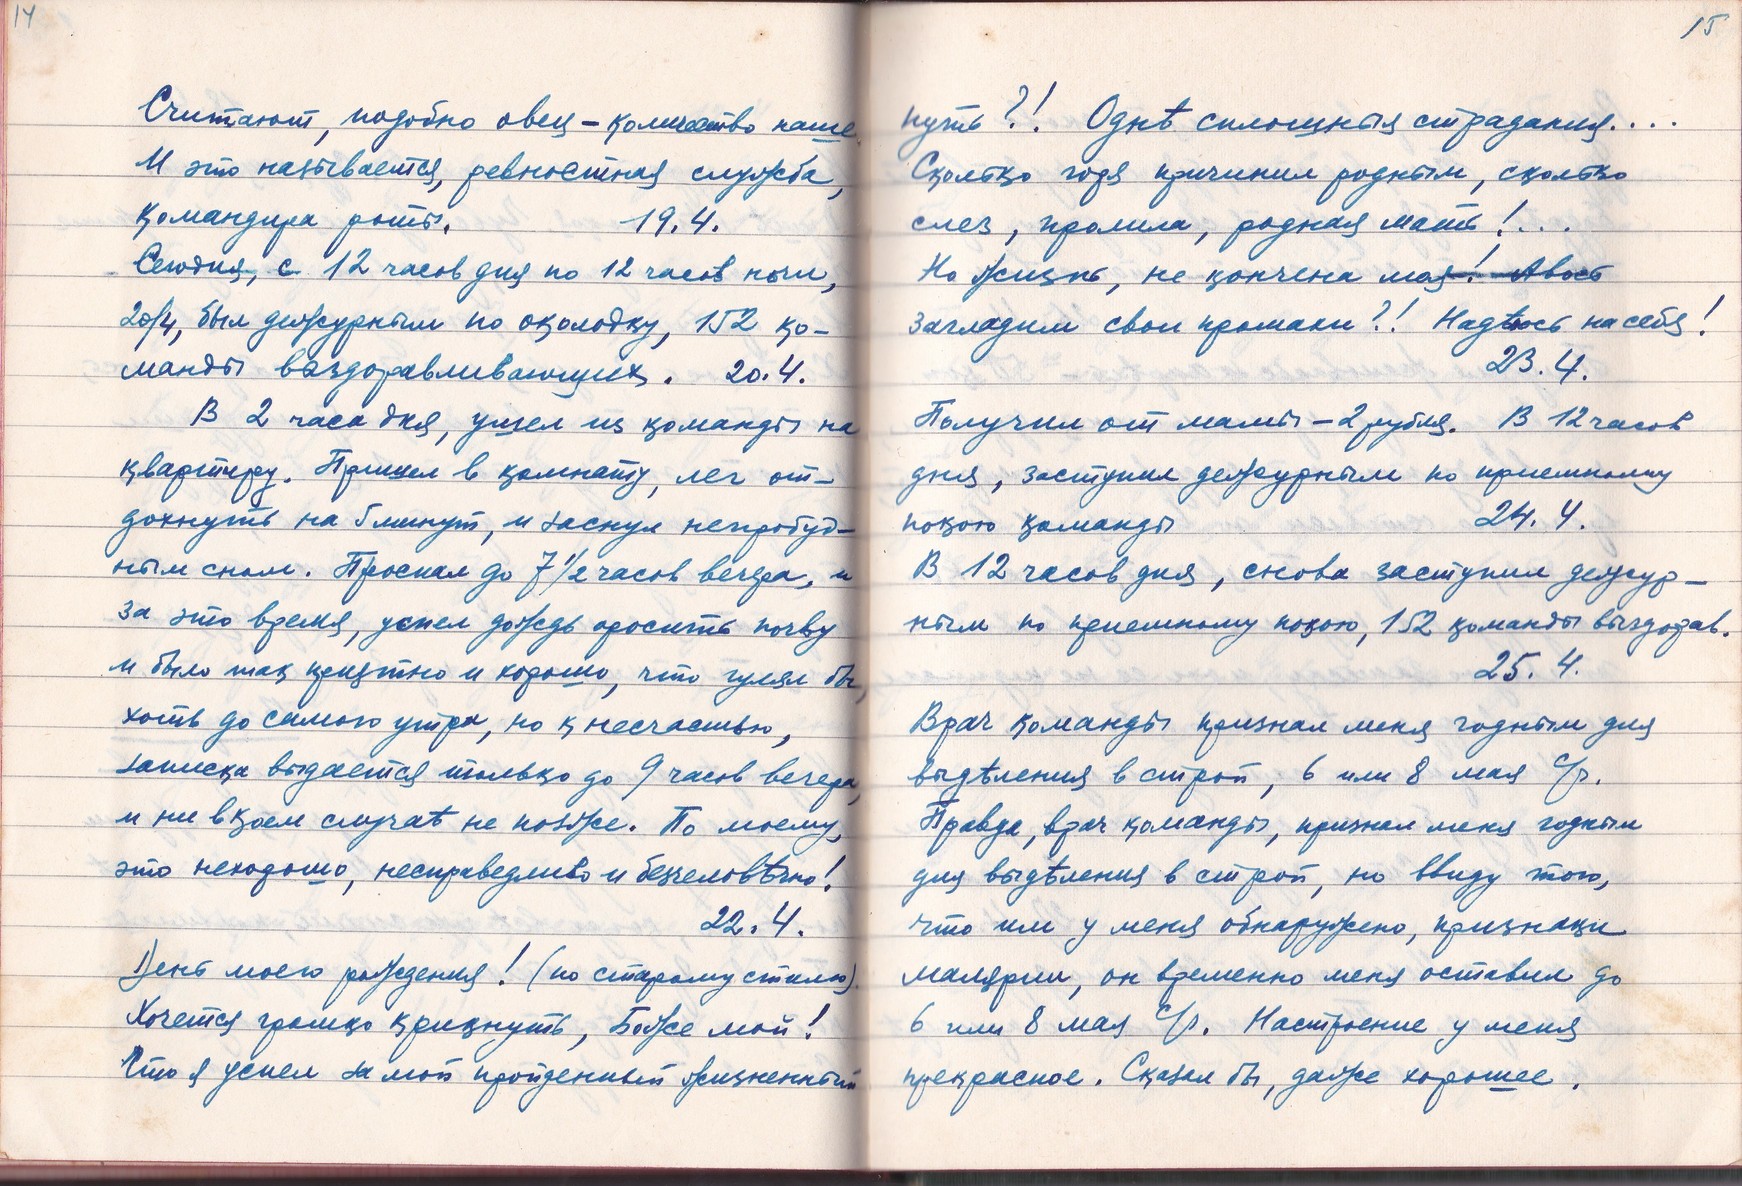 14
Считают, подобно овец – количество наше.
И это называется, ревностная служба,
командира роты. 19.4.
Сегодня, с 12 часов дня по 12 часов ночи,
20/4, был дежурным по околодку, 152 ко-
манды выздоравливающих. 20.4.
В 2 часа дня, ушел из команды на
квартиру. Пришел в комнату, лег от-
дохнуть на 5 минут, и заснул непробуд-
ным сном. Проспал до 7 1/2 часов вечера, и
за это время, успел дождь оросить почву
и было так приятно и хорошо, что гулял бы,
хоть до самого утра, но к несчастью,
записка выдается только до 9 часов вечера,
и ни в коем случаѣ не позже. По моему,
это нехорошо, несправедливо и безчеловѣчно!
22.4.
День моего рождения! (по старому стилю).
Хочется громко крикнуть, Боже мой!
Что я успел за мой пройденный жизненный
15
путь?! Однѣ сплошныя страдания....
Сколько горя причинил родным, сколько
слез, пролила, родная мать!...
Но жизнь, не кончена моя! Авось
загладим свои промахи?! Надѣюсь на себя!
23.4.
Получил от мамы – 2 рубля. В 12 часов
дня, заступил дежурным по приемному
покою команды 24.4.
В 12 часов дня, снова заступил дежур-
ным по приемному покою, 152 команды выздорав.
25.4.
Врач команды признал меня годным для
выдѣления в строй, 6 или 8 мая с/г.
Правда, врач команды, признал меня годным
для выдѣления в строй, но ввиду того,
что им у меня обнаружено, признаки
малярии, он временно меня оставил до
6 или 8 мая с/г. Настроение у меня
прекрасное. Сказал бы, даже хорошее.